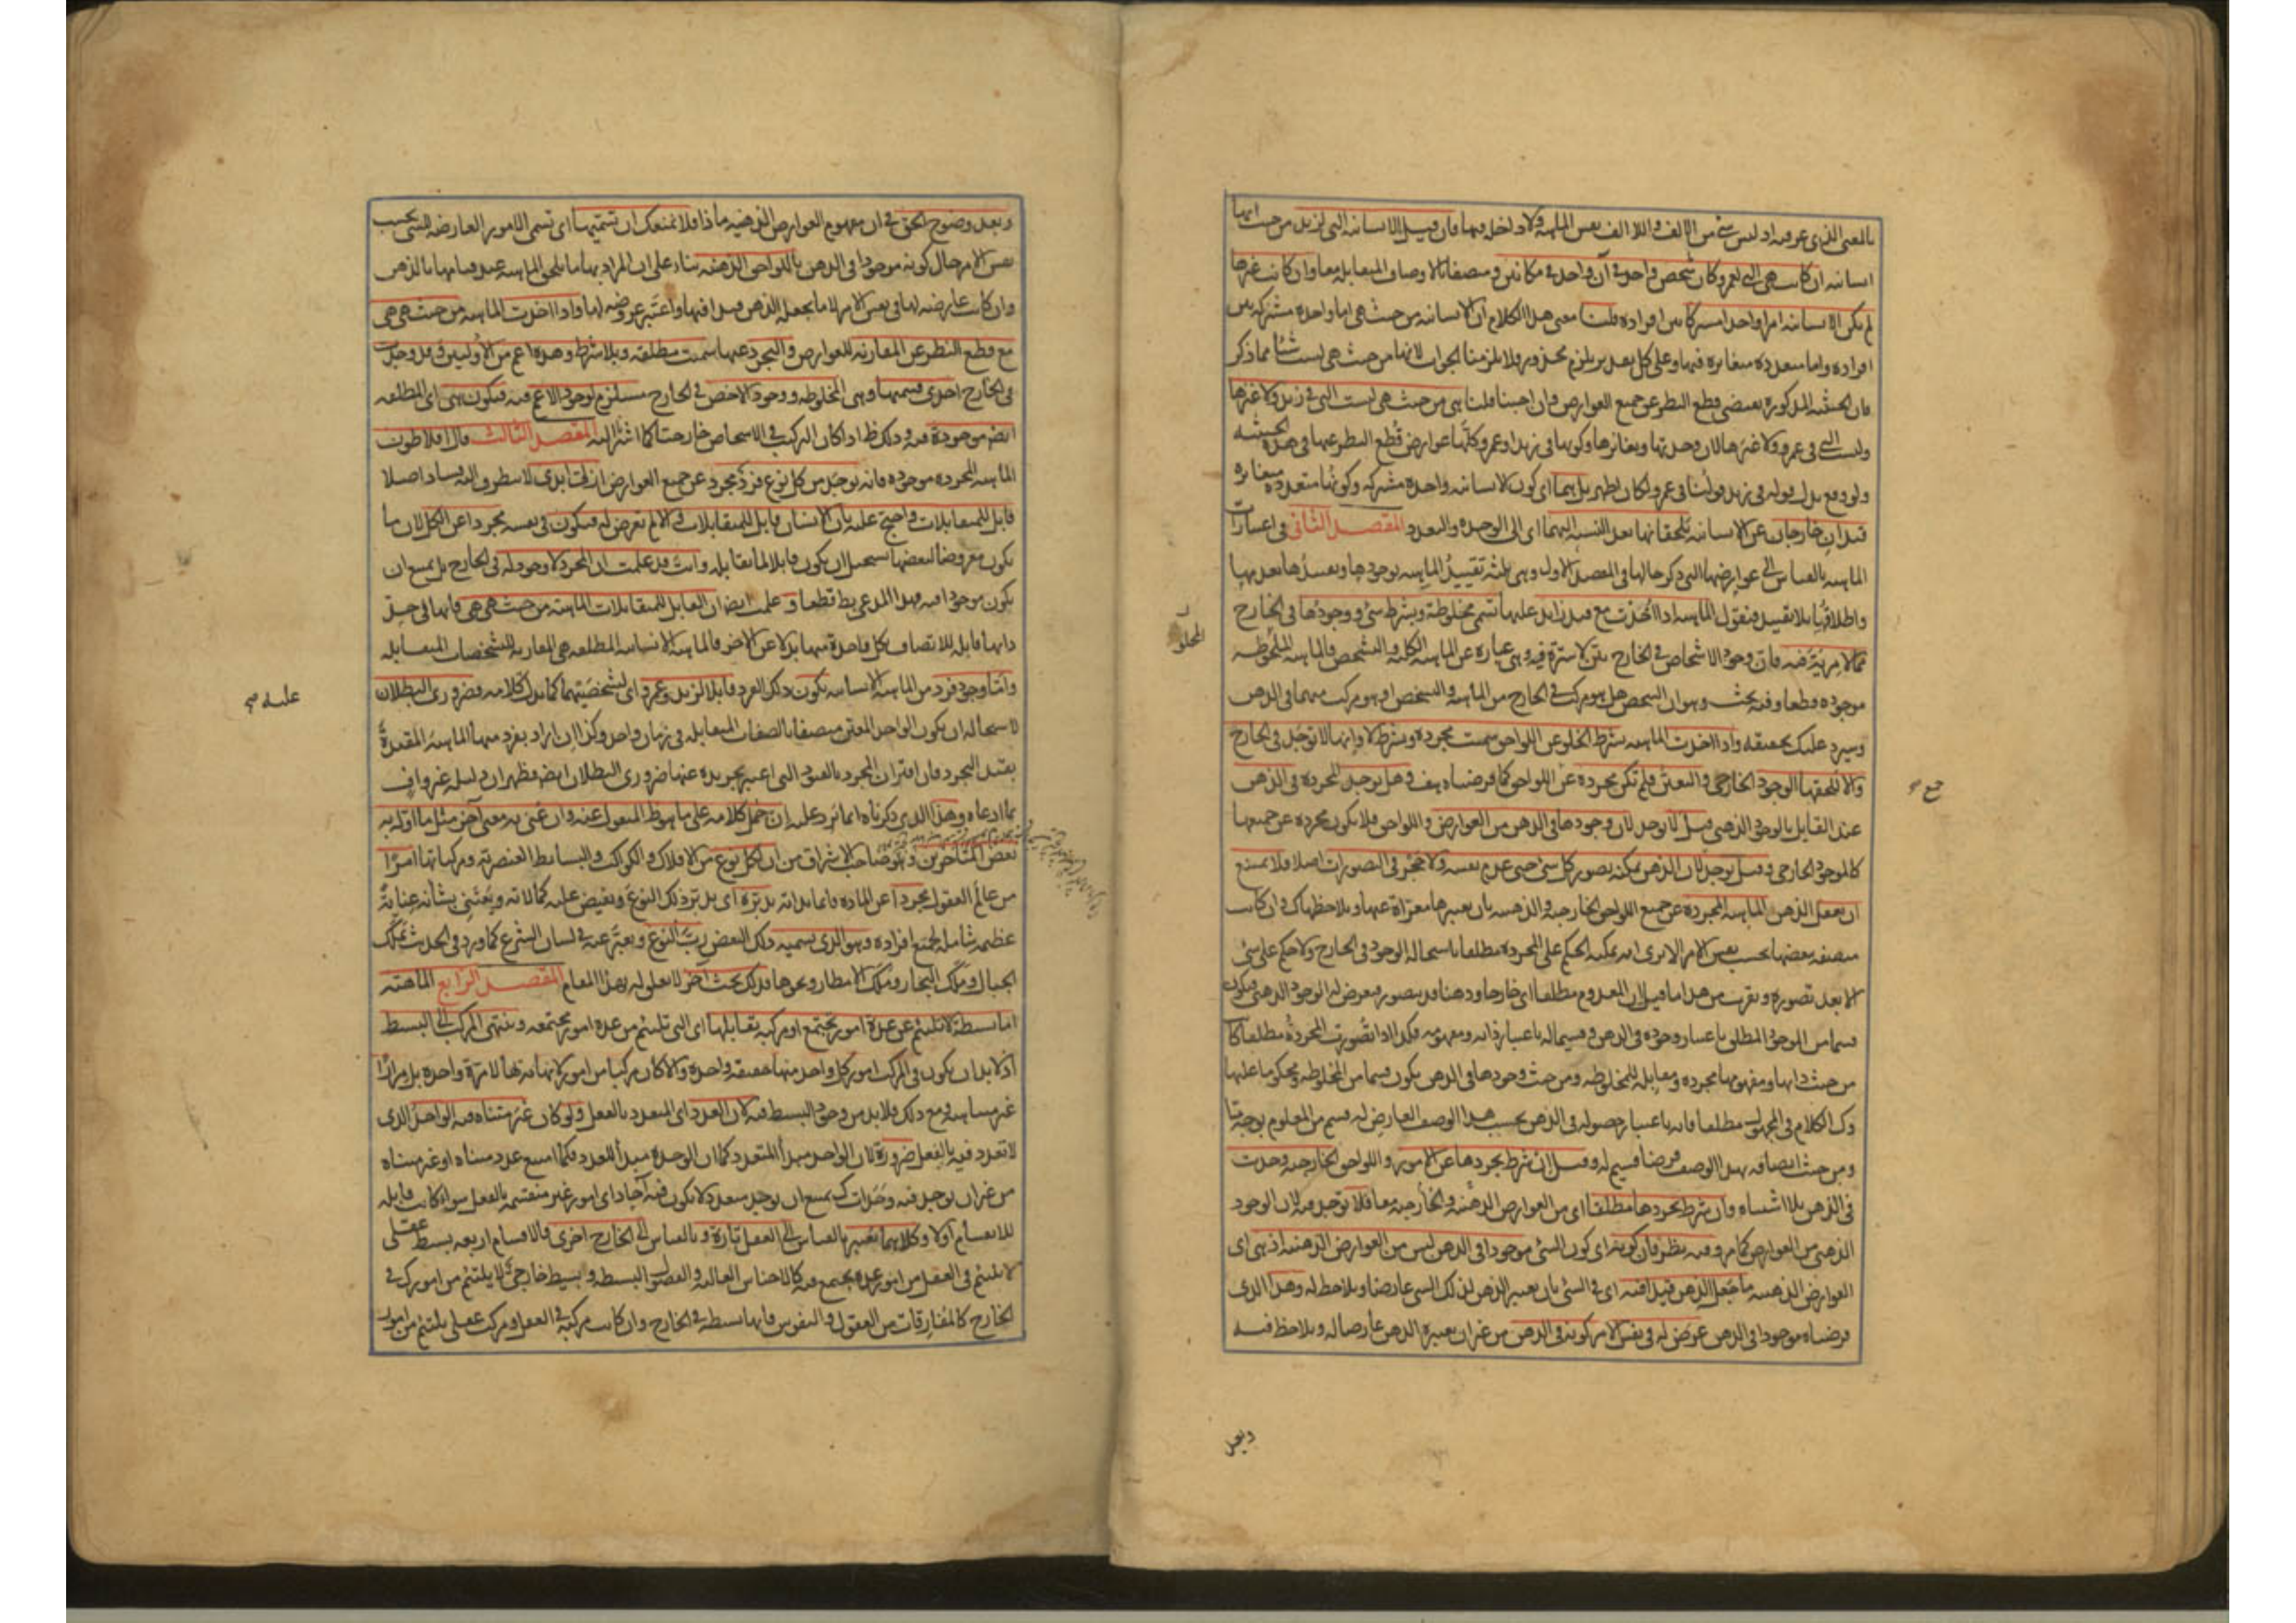 بالمعنى الذي عرفته اذ ليس شئ من الالف واللا الف نفس الماهية ولا داخلا فيها فان قيل الانسانية التي لزيد من حيث انها
انسانية ان كانت هي التي لعمرو كان شخص واحد في آن واحد في مكانين ومتصفا بالاوصاف المتقابلة معا وان كانت غيرها
لم تكن الانسانية امرا واحدا مشتركا بين افراده قلنا معنى هذا الكلام ان الانسانية من حيث هي اما واحدة مشتركة بين
افراده واما متعددة متغايرة فيها وعلى كل تقدير يلزم محذور ولا يلزمنا الجواب لانها من حيث هي ليست شيئا مما ذكر
فان الحيثية المذكورة تقتضي قطع النظر عن جميع العوارض وان اجبنا قلنا هي من حيث هي ليست التي في زيد ولا غيرها
وليست التي في عمرو ولا غيرها لان وحدتها وتغايرها وكونها في زيد او عمرو كلها عوارض قطع النظر عنها في هذه الحيثية
قيدان خارجان عن الانسانية يلحقانها بعد النسبة اليهما اي الى الوحدة والتعدد المقصد الثاني في اعتبارات
الماهية بالقياس الى عوارضها التي ذكر حالها في المقصد الاول وهي ثلثة تقييد الماهية بوجودها وتقييدها بعدمها
واطلاقها بلا تقييد فنقول الماهية اذا اخذت مع قيد زايد عليها تسمى مخلوطة وبشرط شئ ووجودها في الخارج
مما لا مرية فيه فان وجود الاشخاص في الخارج بين لا سترة فيه وهي عبارة عن الماهية الكلية والتشخص فالماهية المخلوطة
موجودة قطعا وفيه بحث وهو ان الشخص هل هو مركب في الخارج من الماهية والتشخص او هو مركب منهما في الذهن
وسيرد عليك تحقيقه واذا اخذت الماهية بشرط الخلو عن اللواحق سميت مجردة وبشرط لا وانها لا توجد في الخارج
والا للحقها الوجود الخارجي والتعين فلم تكن مجردة عن اللواحق كما فرضناه هف وهل توجد المجردة في الذهن
عند القايل بالوجود الذهني قيل لا توجد لان وجودها في الذهن من العوارض واللواحق فلا تكون مجردة عن جميعها
كالوجود الخارجي وقيل توجد لان الذهن يمكنه تصور كل شئ حتى عدم نفسه ولا حجر في التصورات اصلا فلا يمتنع
ان يعقل الذهن الماهية المجردة عن جميع اللواحق الخارجية والذهنية بان يعتبرها معراة عنها ويلاحظها كذلك وان كانت
متصفة ببعضها بحسب نفس الامر الا ترى انه يمكنه الحكم على المجردة مطلقا باستحالة الوجود في الخارج ولا حكم على شئ
الا بعد تصوره وتقرب من هذا ما قيل ان المعدوم مطلقا اي خارجا وذهنا قد يتصور فيعرض له الوجود الذهني فيكون
قسما من الموجود المطلق باعتبار وجوده في الذهن وقسيما له باعتبار ذاته ومفهومه فكذا اذا تصورت المجردة مطلقا كانت
من حيث ذاتها ومفهومها مجردة ومقابلة للمخلوطة ومن حيث وجودها في الذهن تكون قسما من المخلوطة ومحكوما عليها
وكذا الكلام في المجهول مطلقا فانه باعتبار حصوله في الذهن بحسب هذا الوصف العارض له قسم من المعلوم بوجه ما
ومن حيث اتصافه بهذا الوصف فرضا قسيم له وقيل ان شرط تجردها عن الامور واللواحق الخارجية وجدت
في الذهن بلا اشتباه وان شرط تجردها مطلقا اي من العوارض الذهنية والخارجية معا فلا توجد فيه لان الوجود
الذهني من العوارض كما مر وفيه نظر فان كونه اي كون الشئ موجودا في الذهن ليس من العوارض الذهنية اذ هي اي
العوارض الذهنية ما جعل الذهن قيدا فيه اي في الشئ بان يعتبر الذهن لذلك الشئ عارضا ويلاحظ له وهذا الذي
فرضناه موجودا في الذهن عرض له في نفس الامر كونه في الذهن من غير ان يعتبره الذهن عارضا له ويلاحظ فيه
وبعد
وبعد وضوح الحق في ان مفهوم العوارض الذهنية ماذا فلا نمنعك ان تسميها اي تسمي الامور العارضة للشئ بحسب
نفس الامر حال كونه موجودا في الذهن باللواحق الذهنية بناء على ان المراد بها ما يلحق الماهية عند قيامها بالذهن
وان كانت عارضة لها في نفس الامر لا ما يجعله الذهن قيدا فيها واعتبر عروضه لها واذا اخذت الماهية من حيث هي هي
مع قطع النظر عن المقارنة للعوارض والتجرد عنها سميت مطلقة وبلا شرط وهذه اعم من الاوليين وقد وجدت
في الخارج احدى قسميها وهي المخلوطة ووجود الاخص في الخارج مستلزم لوجود الاعم فيه فتكون هي اي المطلقة
ايضا موجودة فيه وذلك ظ اذا كان التركيب في الاشخاص خارجيا كما اشرنا اليه المقصد الثالث قال افلاطون
الماهية المجردة موجودة فانه يوجد من كل نوع فرد مجرد عن جميع العوارض ازلي ابدي لا يتطرق اليه فساد اصلا
قابل للمتقابلات واحتج عليه بان الانسان قابل للمتقابلات والا لم تعرض له فيكون في نفسه مجردا عن الكل لان ما
يكون معروضا لبعضها يستحيل ان يكون قابلا لما يقابله وانت قد علمت ان المجرد لا وجود له في الخارج بل يمتنع ان
يكون موجودا فيه فهذا المدعى بط قطعا وعلمت ايضا ان القابل للمتقابلات الماهية من حيث هي هي فانها في حد
ذاتها قابلة للاتصاف بكل واحدة منها بدلا عن الاخر فالماهية الانسانية المطلقة هي المقارنة للتشخصات المتقابلة
واما وجود فرد من الماهية الانسانية يكون ذلك الفرد قابلا لزيد وعمرو اي لتشخصيتهما كما يدل كلامه فضروري البطلان
لاستحالة ان يكون الواحد المعين متصفا بالصفات المتقابلة في زمان واحد وكذا ان اراد بفرد منها الماهية المقيدة
بقيد التجرد فان اقتران المجرد بالقيود التي اعتبر تجريده عنها ضروري البطلان ايضا فظهر ان دليله غير واف
بما ادعاه وهذا الذي ذكرناه انما يرد عليه ان حمل كلامه على ما هو ظ المنقول عنه وان عنى به معنى آخر مثل ما اوله به
بعض المتأخرين وهو صاحب الاشراق من ان لكل نوع من الافلاك والكواكب والبسائط العنصرية ومركباتها امرا
من عالم العقول مجردا عن المادة قائما بذاته يدبره اي يدبر ذلك النوع ويفيض عليه كمالاته ويعتني بشأنه عناية
عظيمة شاملة لجميع افراده وهو الذي يسميه ذلك البعض رب النوع ويعبر عنه في لسان الشرع كما ورد في الحديث بملك
الجبال وملك البحار وملك الامطار ونحوها فذلك بحث آخر لا تعلق له بهذا المقام المقصد الرابع الماهية
اما بسيطة لا تلتئم عن عدة امور تجتمع او مركبة تقابلها اي التي تلتئم من عدة امور مجتمعة وينتهي المركب الى البسيط
اذ لا بد ان يكون في المركب امور كل واحد منها حقيقة واحدة والا كان مركبا من امور لا نهاية لها لا مرة واحدة بل مرارا
غير متناهية ومع ذلك فلا بد من وجود البسيط فيه لان العدد اي المتعدد بالفعل ولو كان غير متناه فيه الواحد الذي
لا تعدد فيه بالفعل ضرورة لان الواحد مبدأ المتعدد كما ان الوحدة مبدأ للعدد فكما امتنع عدد متناه او غير متناه
من غير ان يوجد فيه وحدات كذا يمتنع ان يوجد متعدد لا يكون فيه آحاد اي امور غير منقسمة بالفعل سواء كانت قابلة
للانقسام اولا وكلاهما يعتبر بالقياس الى العقل تارة وبالقياس الى الخارج اخرى فالاقسام اربعة بسيط عقلي
لا يلتئم في العقل من امور عدة تجتمع فيه كالاجناس العالية والفصول البسيطة وبسيط خارجي لا يلتئم من امور كذلك في
الخارج كالمفارقات من العقول والنفوس فانها بسيطة في الخارج وان كانت مركبة في العقل ومركب عقلي يلتئم من امور